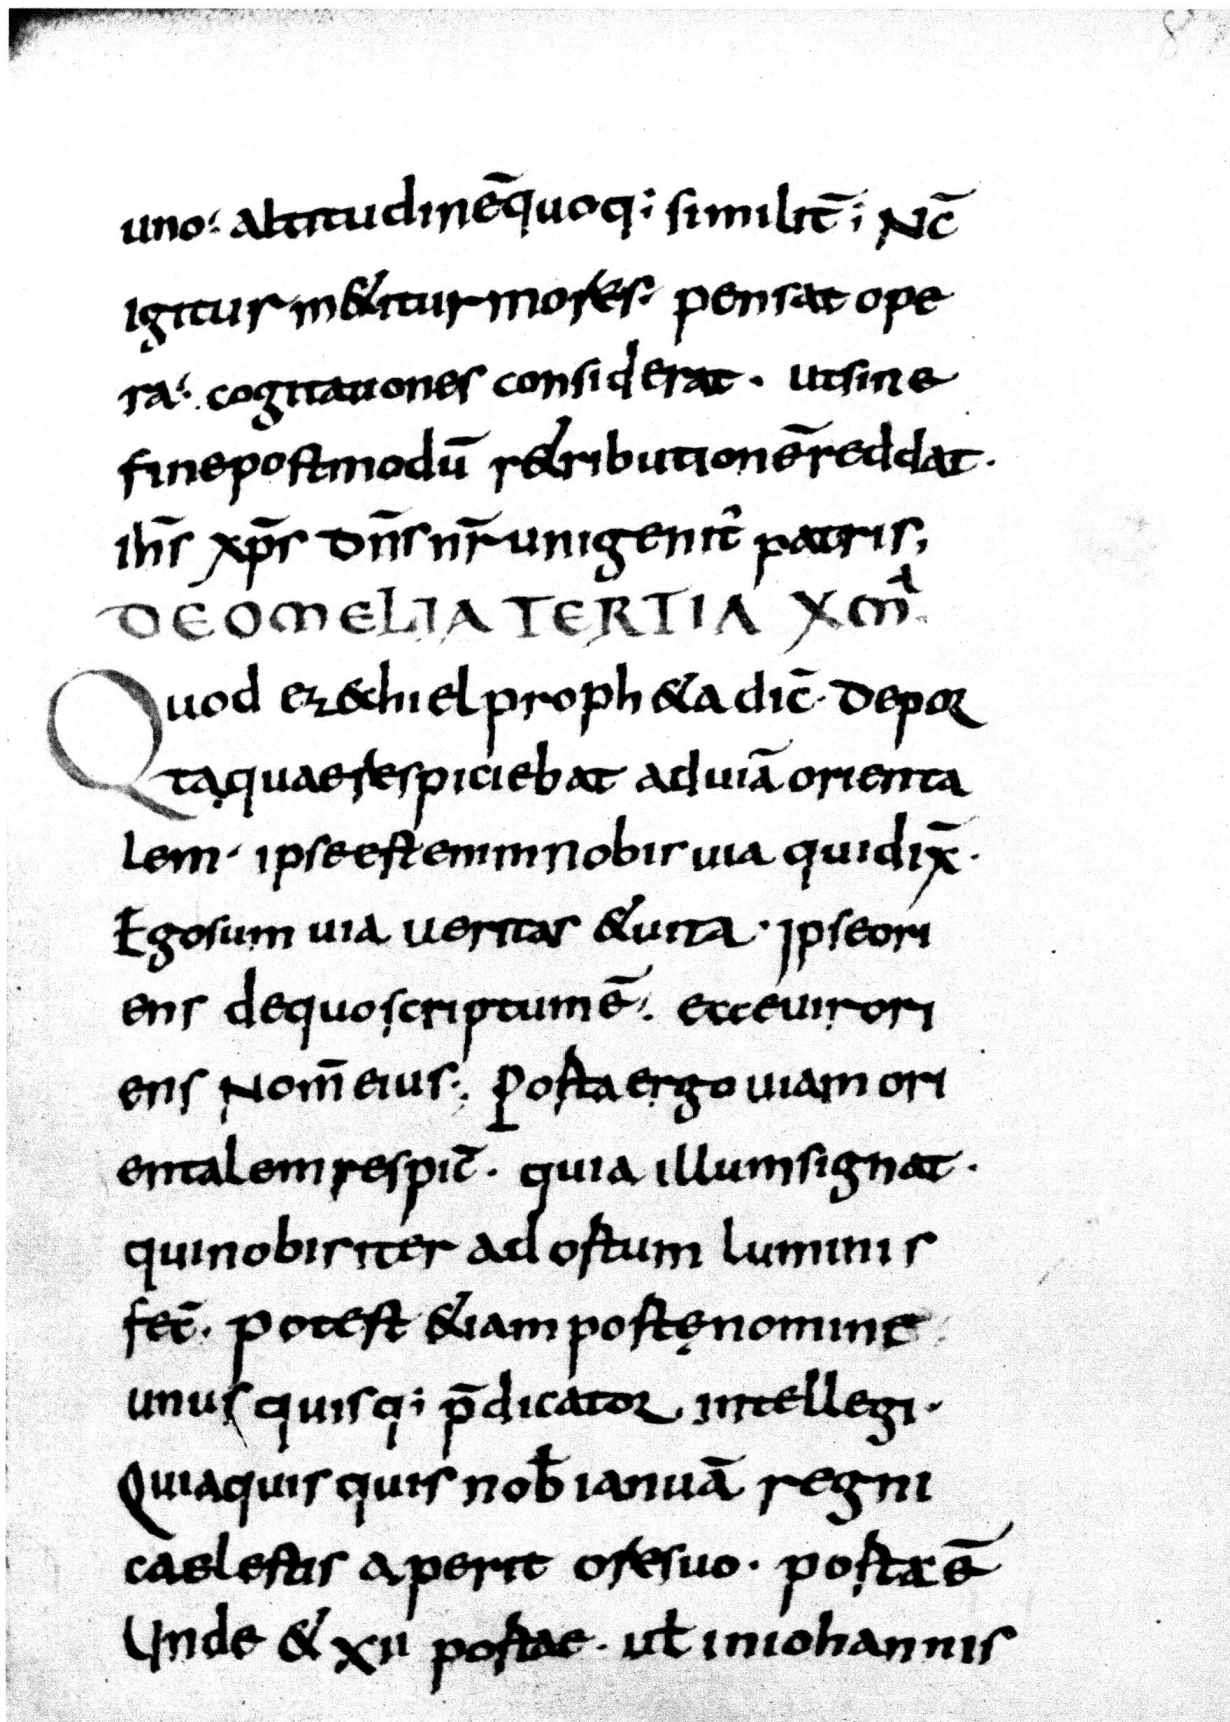 uno; altitudinē quoq; similit̄; Nc̄
igitur m&itur mores. pensat ope
ra; cogitationes considerat. ut sine
fine postmodū r&ributionē reddat.
ih̄s xp̄s dn̄s nr̄ unigenit᾽ patris;
DE OMELIA TERTIA X̄M̄A
Quod ez&chiel proph&a dic̄. de por
ta quae respiciebat ad uiā orienta
lem. ipse est enim nobis uia qui dix̄.
Ego sum uia ueritas & uita. Ipse ori
ens de quo scriptum ē. ecce uir ori
ens Nom̄ eius; Porta ergo uiam ori
entalem respic̄. quia illum signat.
qui nobis iter ad ortum luminis
fec̄. potest &iam portę nomine
unusquisq; p̄dicator intellegi.
Quia quisquis nob̄ ianuā regni
caelestis aperit ore suo. porta ē
Unde & xii portae. ut̄ in iohannis